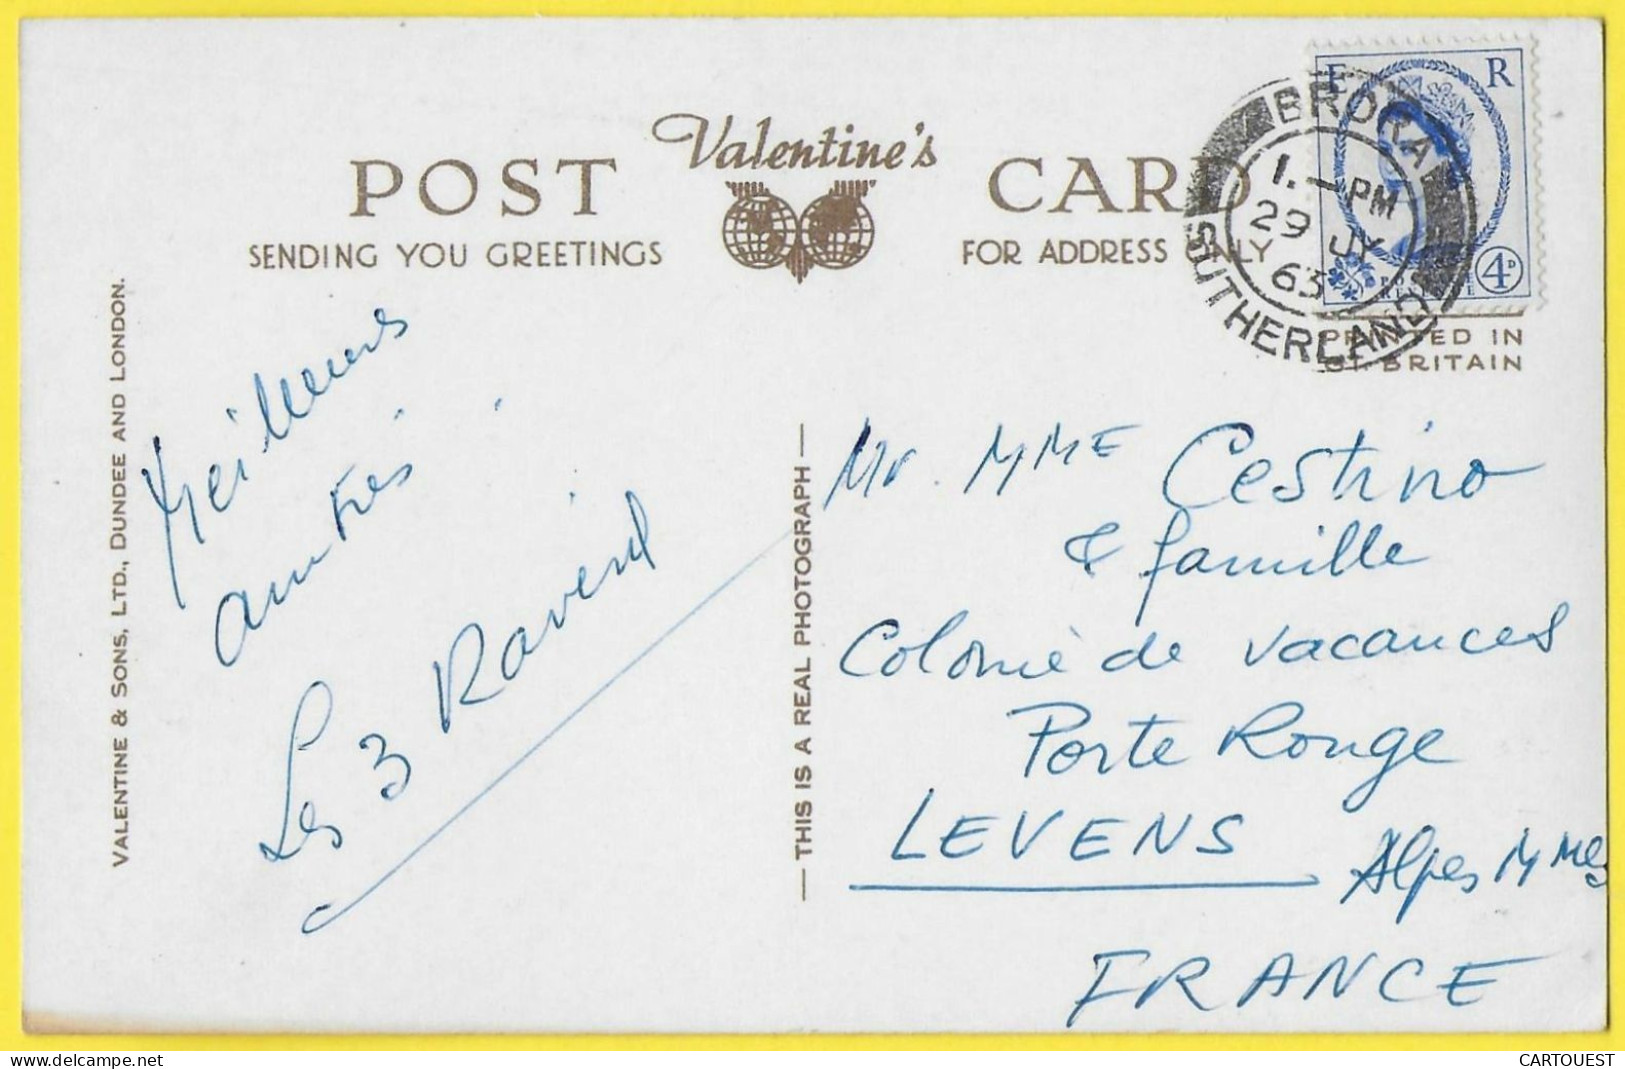 POST Valentine's CARD
SENDING YOU GREETINGS FOR ADDRESS ONLY
E R
4D
BRORA
1.— PM
29 JY
63
SUTHERLAND
PRINTED IN
GT. BRITAIN
VALENTINE & SONS, LTD., DUNDEE AND LONDON.
Meilleures
amitiés
Les 3
— THIS IS A REAL PHOTOGRAPH —
Mr. MME Cestino
& famille
Colonie de vacances
Porte Rouge
LEVENS Alpes Mmes
FRANCE
CARTOUEST